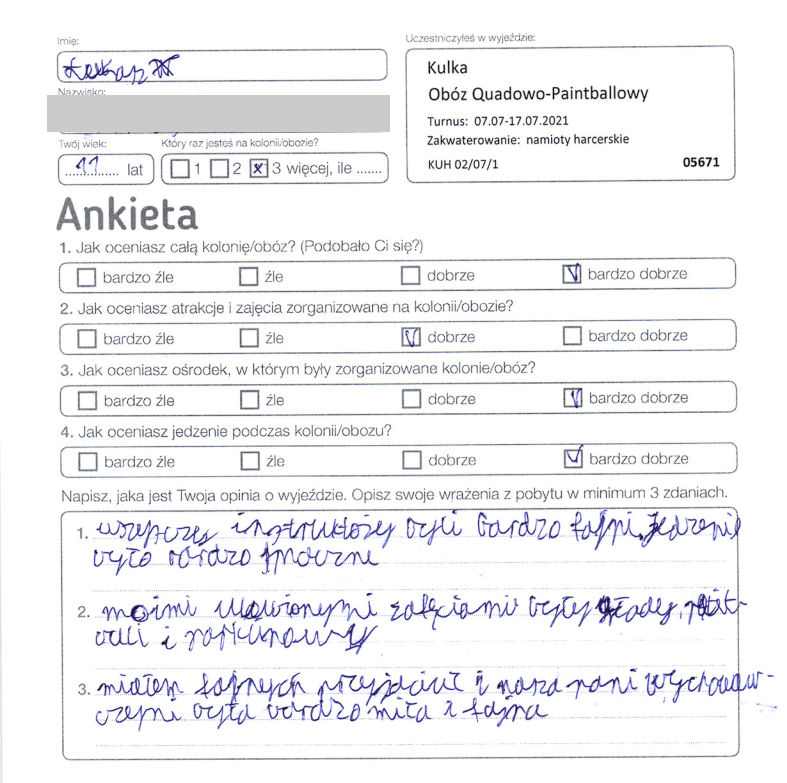 Imię:
Uczestniczyłeś w wyjeździe:
Łukasz
Kulka
Obóz Quadowo-Paintballowy
Nazwisko:
Turnus: 07.07-17.07.2021
Zakwaterowanie: namioty harcerskie
KUH 02/07/1 05671
Twój wiek: Który raz jesteś na kolonii/obozie?
11 lat 1 2 x 3 więcej, ile .......
Ankieta
1. Jak oceniasz całą kolonię/obóz? (Podobało Ci się?)
bardzo źle źle dobrze V bardzo dobrze
2. Jak oceniasz atrakcje i zajęcia zorganizowane na kolonii/obozie?
bardzo źle źle V dobrze bardzo dobrze
3. Jak oceniasz ośrodek, w którym były zorganizowane kolonie/obóz?
bardzo źle źle dobrze V bardzo dobrze
4. Jak oceniasz jedzenie podczas kolonii/obozu?
bardzo źle źle dobrze V bardzo dobrze
Napisz, jaka jest Twoja opinia o wyjeździe. Opisz swoje wrażenia z pobytu w minimum 3 zdaniach.
1. wszyscy instruktorzy byli bardzo fajni, jedzenie
było bardzo smaczne
2. moimi ulubionymi zajęciami były
i
3. miałem fajnych przyjaciuł i nasza pani wychowaw-
czyni była bardzo miła i fajna